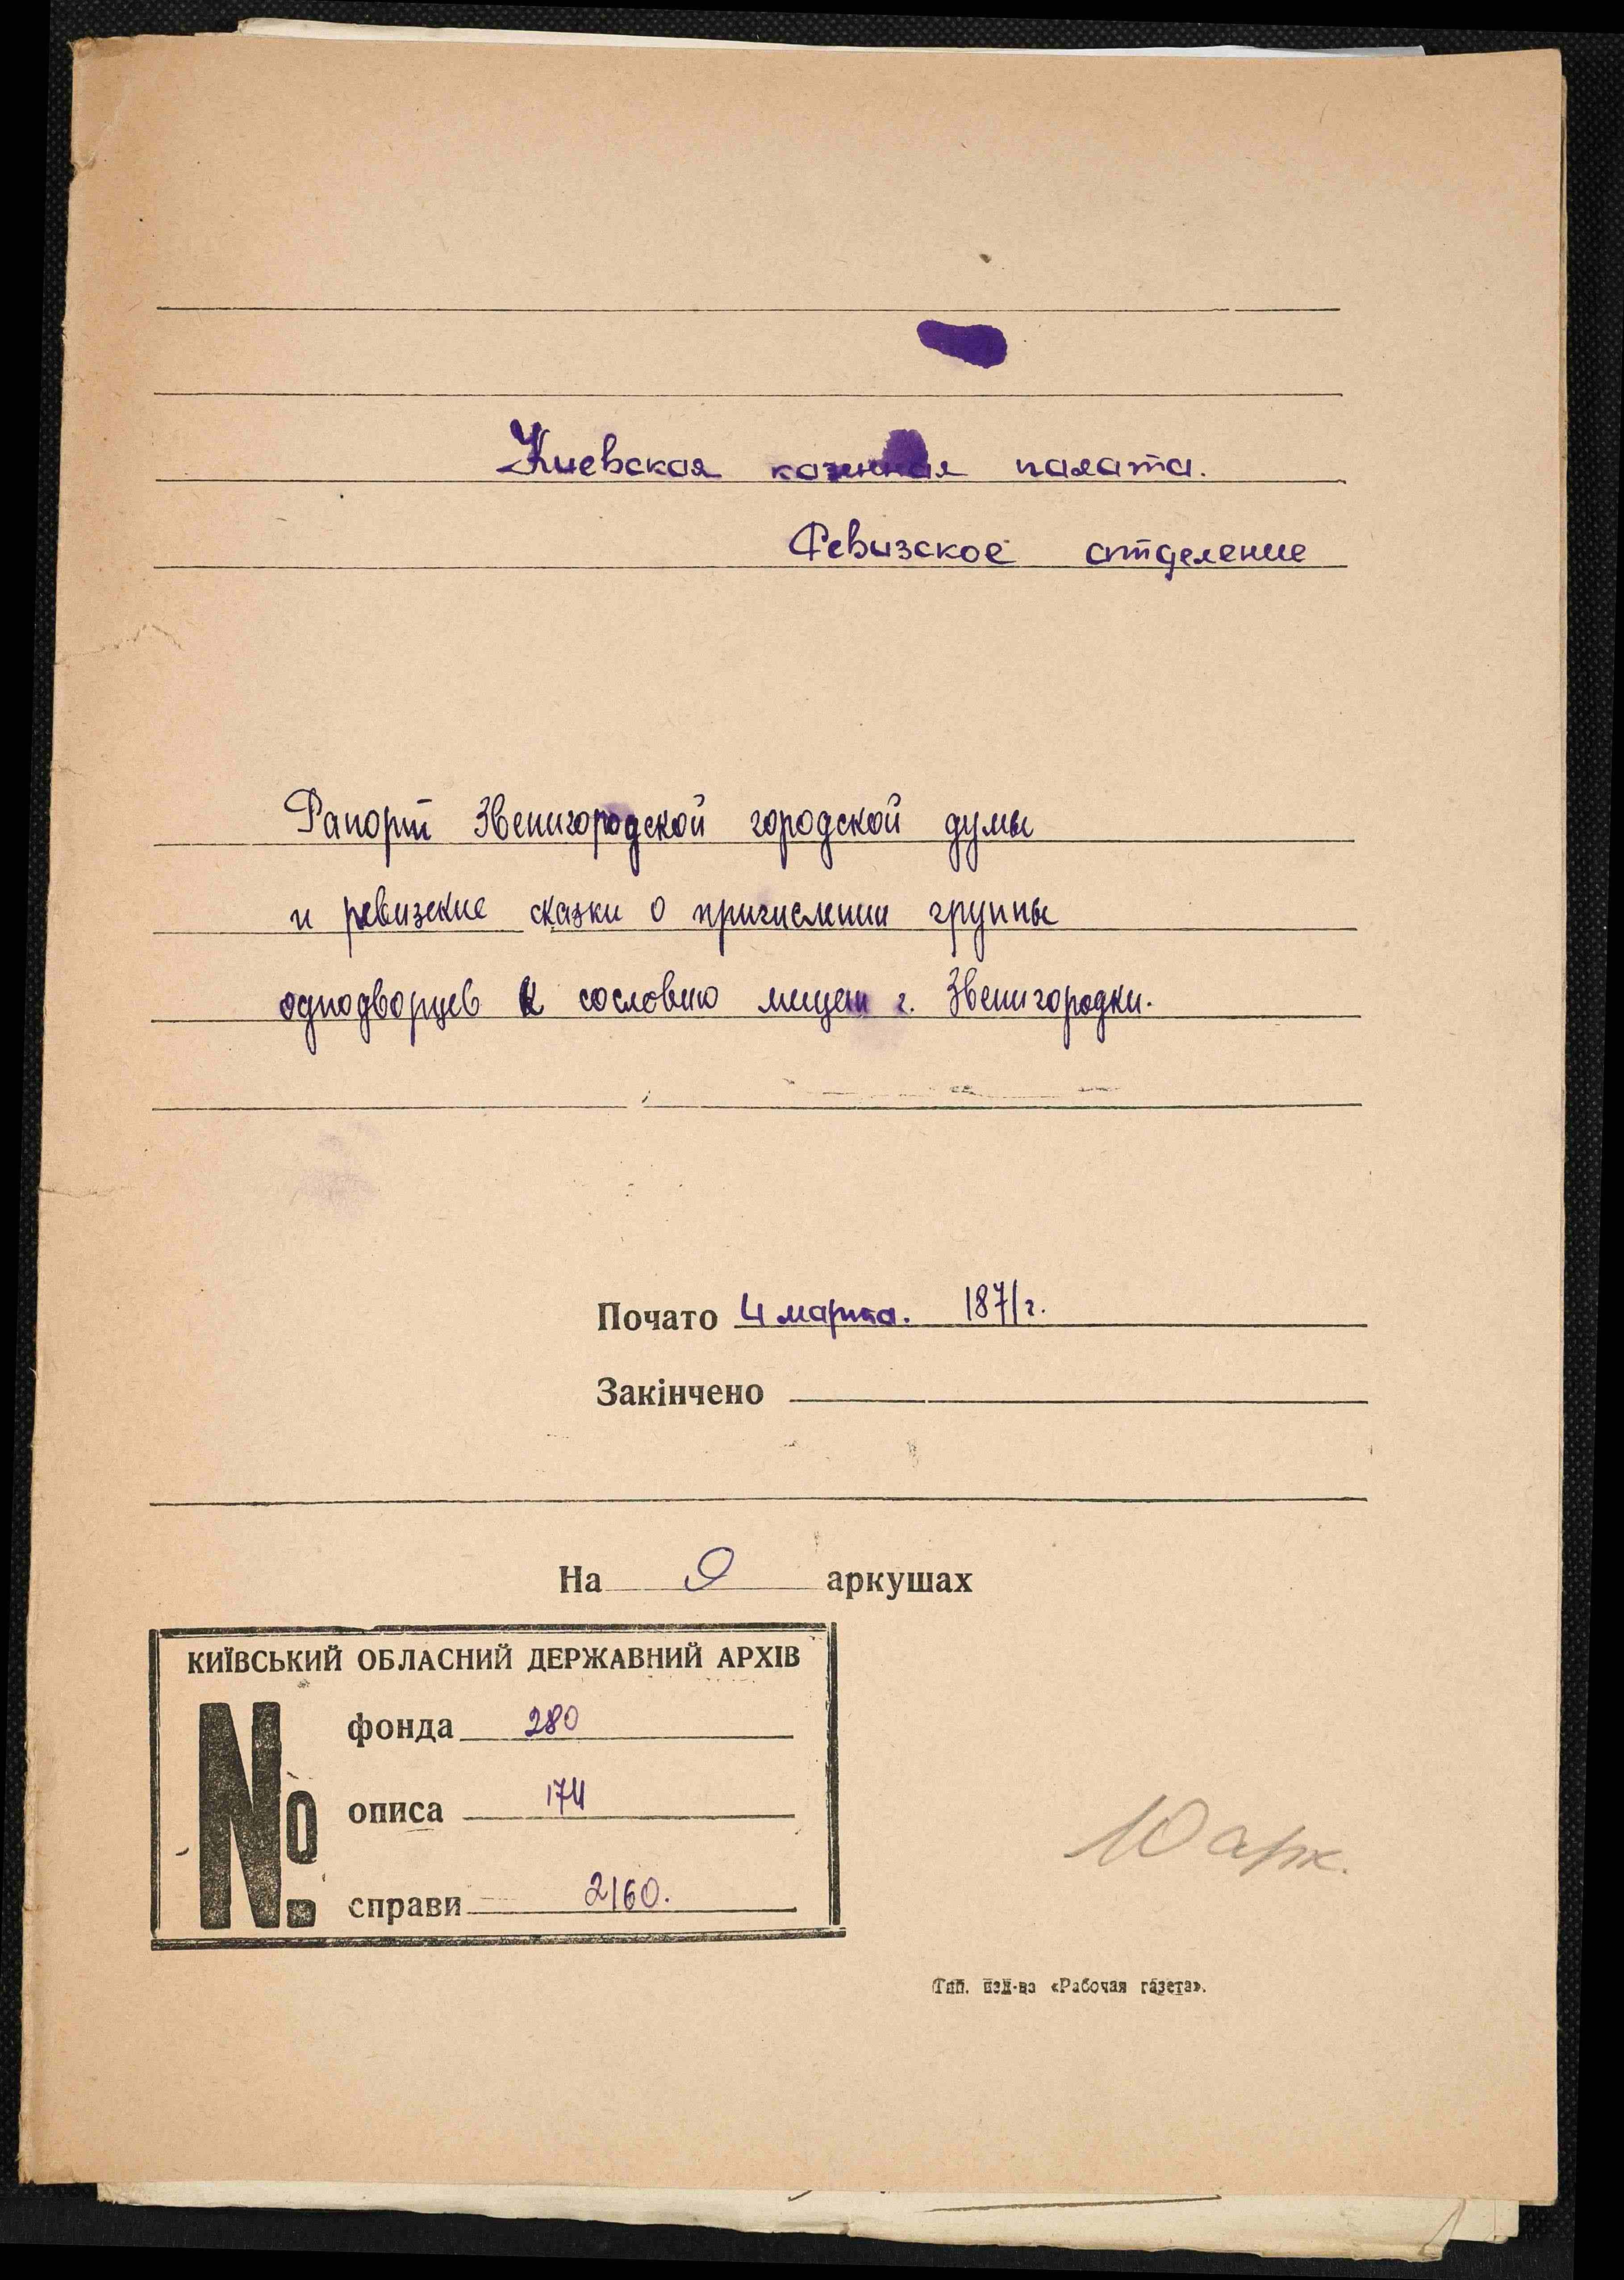 Киевская казенная палата.
Ревизское отделение
Рапорт Звенигородской городской думы
и ревизские сказки о причислении группы
однодворцев к сословию мещан г. Звенигородки.
Почато 4 марта. 1871 г.
Закінчено
На 9 аркушах
КИЇВСЬКИЙ ОБЛАСНИЙ ДЕРЖАВНИЙ АРХІВ
№ фонда 280
описа 174
справи 2160.
10 арк.
Тип. изд-ва «Рабочая газета».